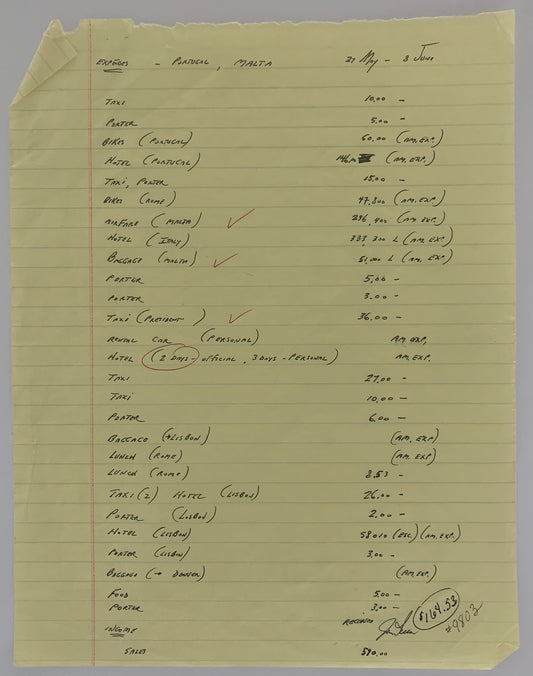 EXPENSES - PORTUGAL, MALTA 21 MAY - 8 JUNE
TAXI 10.00 -
PORTER 5.00 -
BIKES (PORTUGAL) 60.00 (AM. EXP.)
HOTEL (PORTUGAL) (AM. EXP.)
TAXI, PORTER 15.00 -
BIKES (ROME) 47,800 (AM. EXP.)
AIRFARE (MALTA) 296,400 (AM. EXP.)
HOTEL (ITALY) 333,300 L (AM. EXP)
BAGGAGE (MALTA) 51,000 L (AM. EXP)
PORTER 5.00 -
PORTER 3.00 -
TAXI (PRESIDENT) 36.00 -
RENTAL CAR (PERSONAL) AM. EXP.
HOTEL (2 DAYS - OFFICIAL, 3 DAYS - PERSONAL) AM. EXP.
TAXI 27.00 -
TAXI 10.00 -
PORTER 6.00 -
BAGGAGE (→LISBON) (AM. EXP.)
LUNCH (ROME) (AM. EXP)
LUNCH (ROME) 8.53 -
TAXI (2) HOTEL (LISBON) 26.00 -
PORTER (LISBON) 2.00 -
HOTEL (LISBON) 58010 (ESC) (AM. EXP.)
PORTER (LISBON) 3.00 -
BAGGAGE (→ DENVER) (AM. EXP.)
FOOD 5.00 -
PORTER 3.00 -
$164.53
INCOME RECEIVED #9803
SALES 570.00